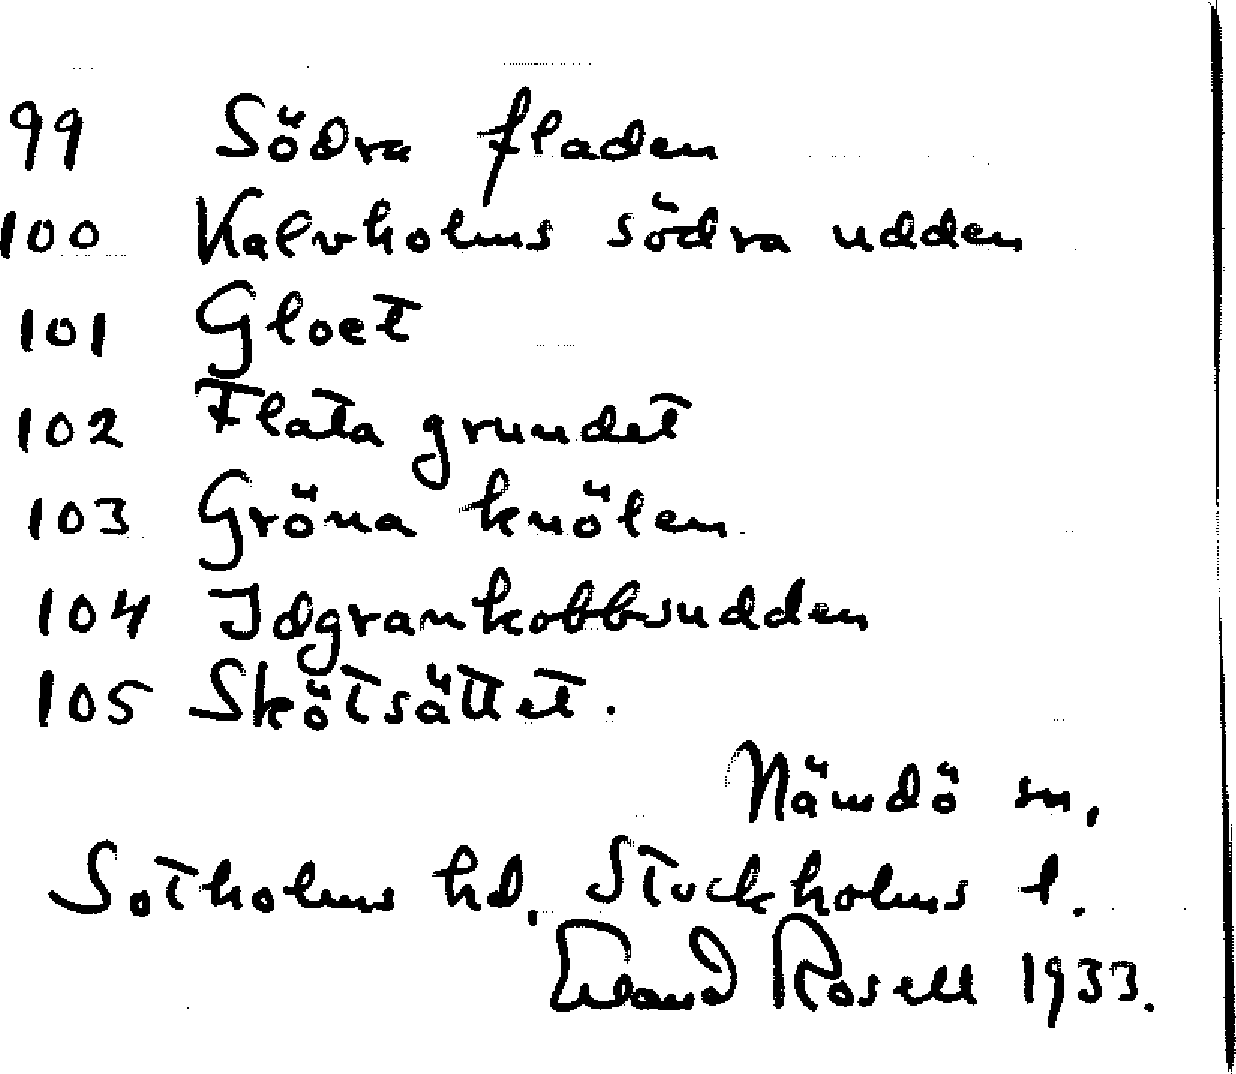 99 Södra fladen
100 Kalvholms södra udden
101 Gloet
102 Flata grundet
103 Gröna knölen
104 Idgrankobbsudden
105 Skötsättet.
Nämdö sn,
Sotholms hd. Stockholms l.
Erland Rosell 1933.